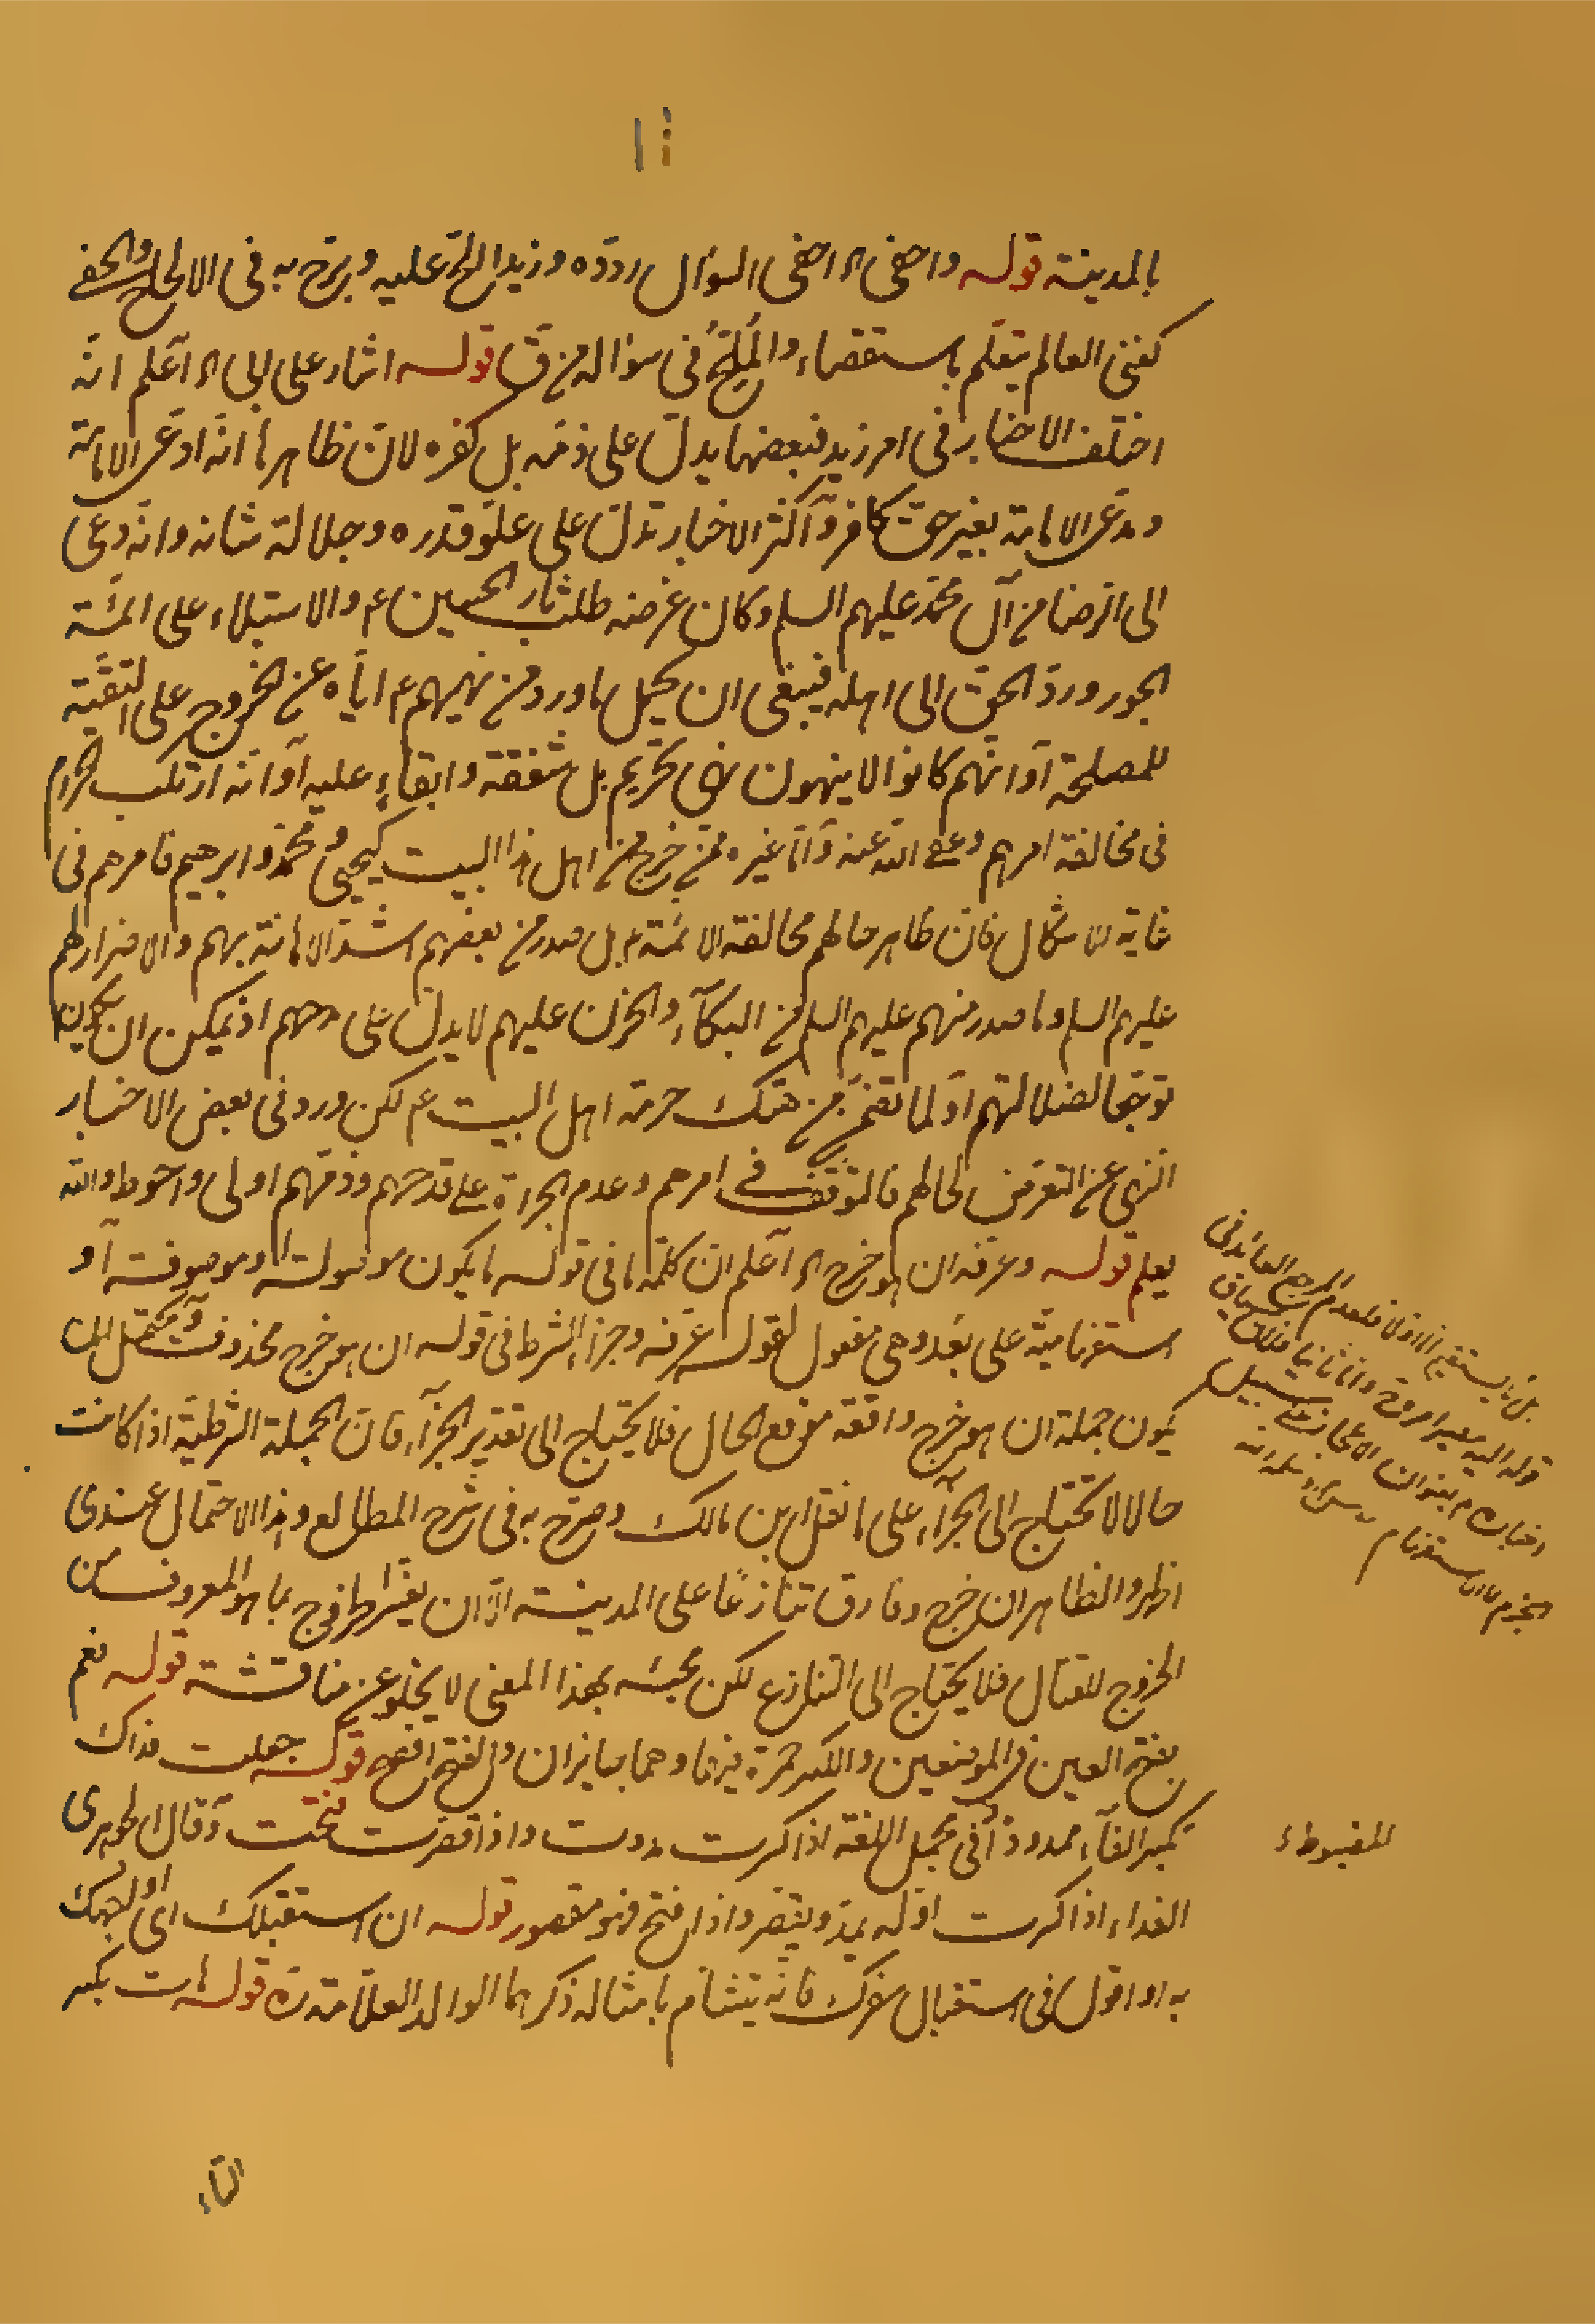 بالمدينة قوله واحفى اه احفى السؤال ردده وزيدا الح عليه وبرح به فى الالحاح والحفى
كغنى العالم يتعلم باستقصاء والملح فى سؤاله من ق قوله اشار على ابى اه اعلم انه
اختلف الاخبار فى امر زيد فبعضها يدل على ذمه بل كفره لان ظاهرها انه ادعى الامامة
ومدعى الامامة بغير حق كافر واكثر الاخبار تدل على علو قدره وجلالة شانه وانه دعى
الى الرضا من آل محمد عليهم السلم وكان غرضه طلب ثار الحسين ع م والاستيلاء على ائمة
الجور ورد الحق الى اهله فينبغى ان يحمل ما ورد من نهيهم ع م اياه عن الخروج على التقية
للمصلحة او انهم كانوا لا ينهون نهى تحريم بل شفقة وابقاء عليه او انه ارتكب الحرام
فى مخالفة امرهم وعفى الله عنه واما غيره ممن خرج من اهل هذا البيت كيحيى ومحمد وابرهيم فامرهم فى
غاية الاشكال فان ظاهر حالهم مخالفة الائمة ع م بل صدر من بعضهم اشد الاهانة بهم والاضرار لهم
عليهم السلم وما صدر منهم عليهم السلم من البكآء والحزن عليهم لا يدل على مدحهم اذ يمكن ان يكون
توجعا لضلالتهم او لما تضمن من هتك حرمة اهل البيت ع م لكن ورد فى بعض الاخبار
النهى عن التعرض لحالهم فالتوقف فى امرهم وعدم الجراة على قدحهم وذمهم اولى واحوط والله
يعلم قوله وعرفه ان هو خرج اه اعلم ان كلمة ما فى قوله ما يكون موصولة او موصوفة او
استفهامية على بعد وهى مفعول لقوله عرفه وجزاء الشرط فى قوله ان هو خرج محذوف ويحتمل ان
يكون جملة ان هو خرج واقعة موقع الحال فلا يحتاج الى تقدير الجزآء فان الجملة الشرطية اذا كانت
حالا لا تحتاج الى الجزآء على ما نقل ابن مالك وصرح به فى شرح المطالع وهذا الاحتمال عندى
اظهر والظاهر ان خرج وفارق تنازعا على المدينة الا ان يفسر الخروج بما هو المعروف من
الخروج للقتال فلا يحتاج الى التنازع لكن مجيئه بهذا المعنى لا يخلو عن مناقشة قوله نعم
بفتح العين فى الموضعين والكسر حمزة فيهما وهما جايزان والفتح افصح قوله جعلت فداك
بكسر الفآء ممدودا فى مجمل اللغة اذا كسرت مددت واذا قصرت فتحت وقال الجوهرى
الفداء اذا كسرت اوله يمد ويقصر واذا فتح فهو مقصور قوله ان استقبلك اى اواجهك
به او اقول فى استقبال سفرك فانه يتشأم بامثاله ذكرهما الوالد العلامة ره قوله هات بكسر
التاء
المضبوط